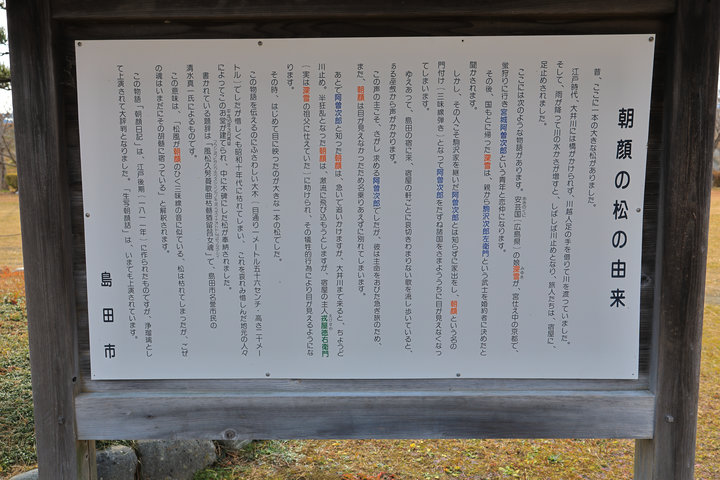 朝顔の松の由来
昔、ここに一本の大きな松がありました。
江戸時代、大井川には橋がかけられず、川越人足の手を借りて川を渡っていました。
そして、雨が降って川の水かさが増すと、しばしば川止めとなり、旅人たちは、宿屋に
足止めされました。
ここには次のような物語があります。安芸国(広島県)の娘深雪が、宮仕え中の京都で、
蛍狩りに行き宮城阿曽次郎という青年と恋仲になります。
その後、国もとに帰った深雪は、親から駒沢次郎左衛門という武士を婚約者に決めたと
聞かされます。
しかし、その人こそ駒沢家を継いだ阿曽次郎とは知らずに家出をし、朝顔という名の
門付け(三味線弾き)となって阿曽次郎をたずね諸国をさまよううちに目が見えなくなっ
てしまいます。
ゆえあって、島田の宿に来、宿屋の軒ごとに哀切きわまりない歌を流し歩いていると、
ある座敷から声がかかります。
この声の主こそ、さがし求める阿曽次郎でしたが、彼は主命をおびた急ぎ旅のため、
また、朝顔は目が見えなかったため名乗りあえずに別れてしまいます。
あとで阿曽次郎と知った朝顔は、急いで追いかけますが、大井川まで来ると、ちょうど
川止め。半狂乱となった朝顔は、激流に飛び込もうとしますが、宿屋の主人戎屋徳右衛門
(実は深雪の祖父に仕えていた)に助けられ、その犠牲的行為により目が見えるようにな
ります。
その時、はじめて目に映ったのが大きな一本の松でした。
この物語を伝えるのにふさわしい大木(目通り一メートル五十六センチ・高さ二十メー
トル)でしたが惜しくも昭和十年代に枯れてしまい、これを哀れみ惜しんだ地元の人々
によってこのお堂が建てられ、中に木碑にした松が奉納されました。
書かれている題辞は「風松久髣蕣歌曲枯髄猶留瞽女魂」で、島田市名誉市民の
清水真一氏によるものです。
この意味は、「松風が朝顔のひく三味線の音に似ている、松は枯れてしまったが、こぜ
の魂はいまだにその胡髄に宿っている」と解釈されます。
この物語「朝顔日記」は、江戸後期(一八一一年)に作られたものですが、浄瑠璃とし
て上演されて大評判となりました。「生写朝顔話」は、いまでも上演されています。
島田市